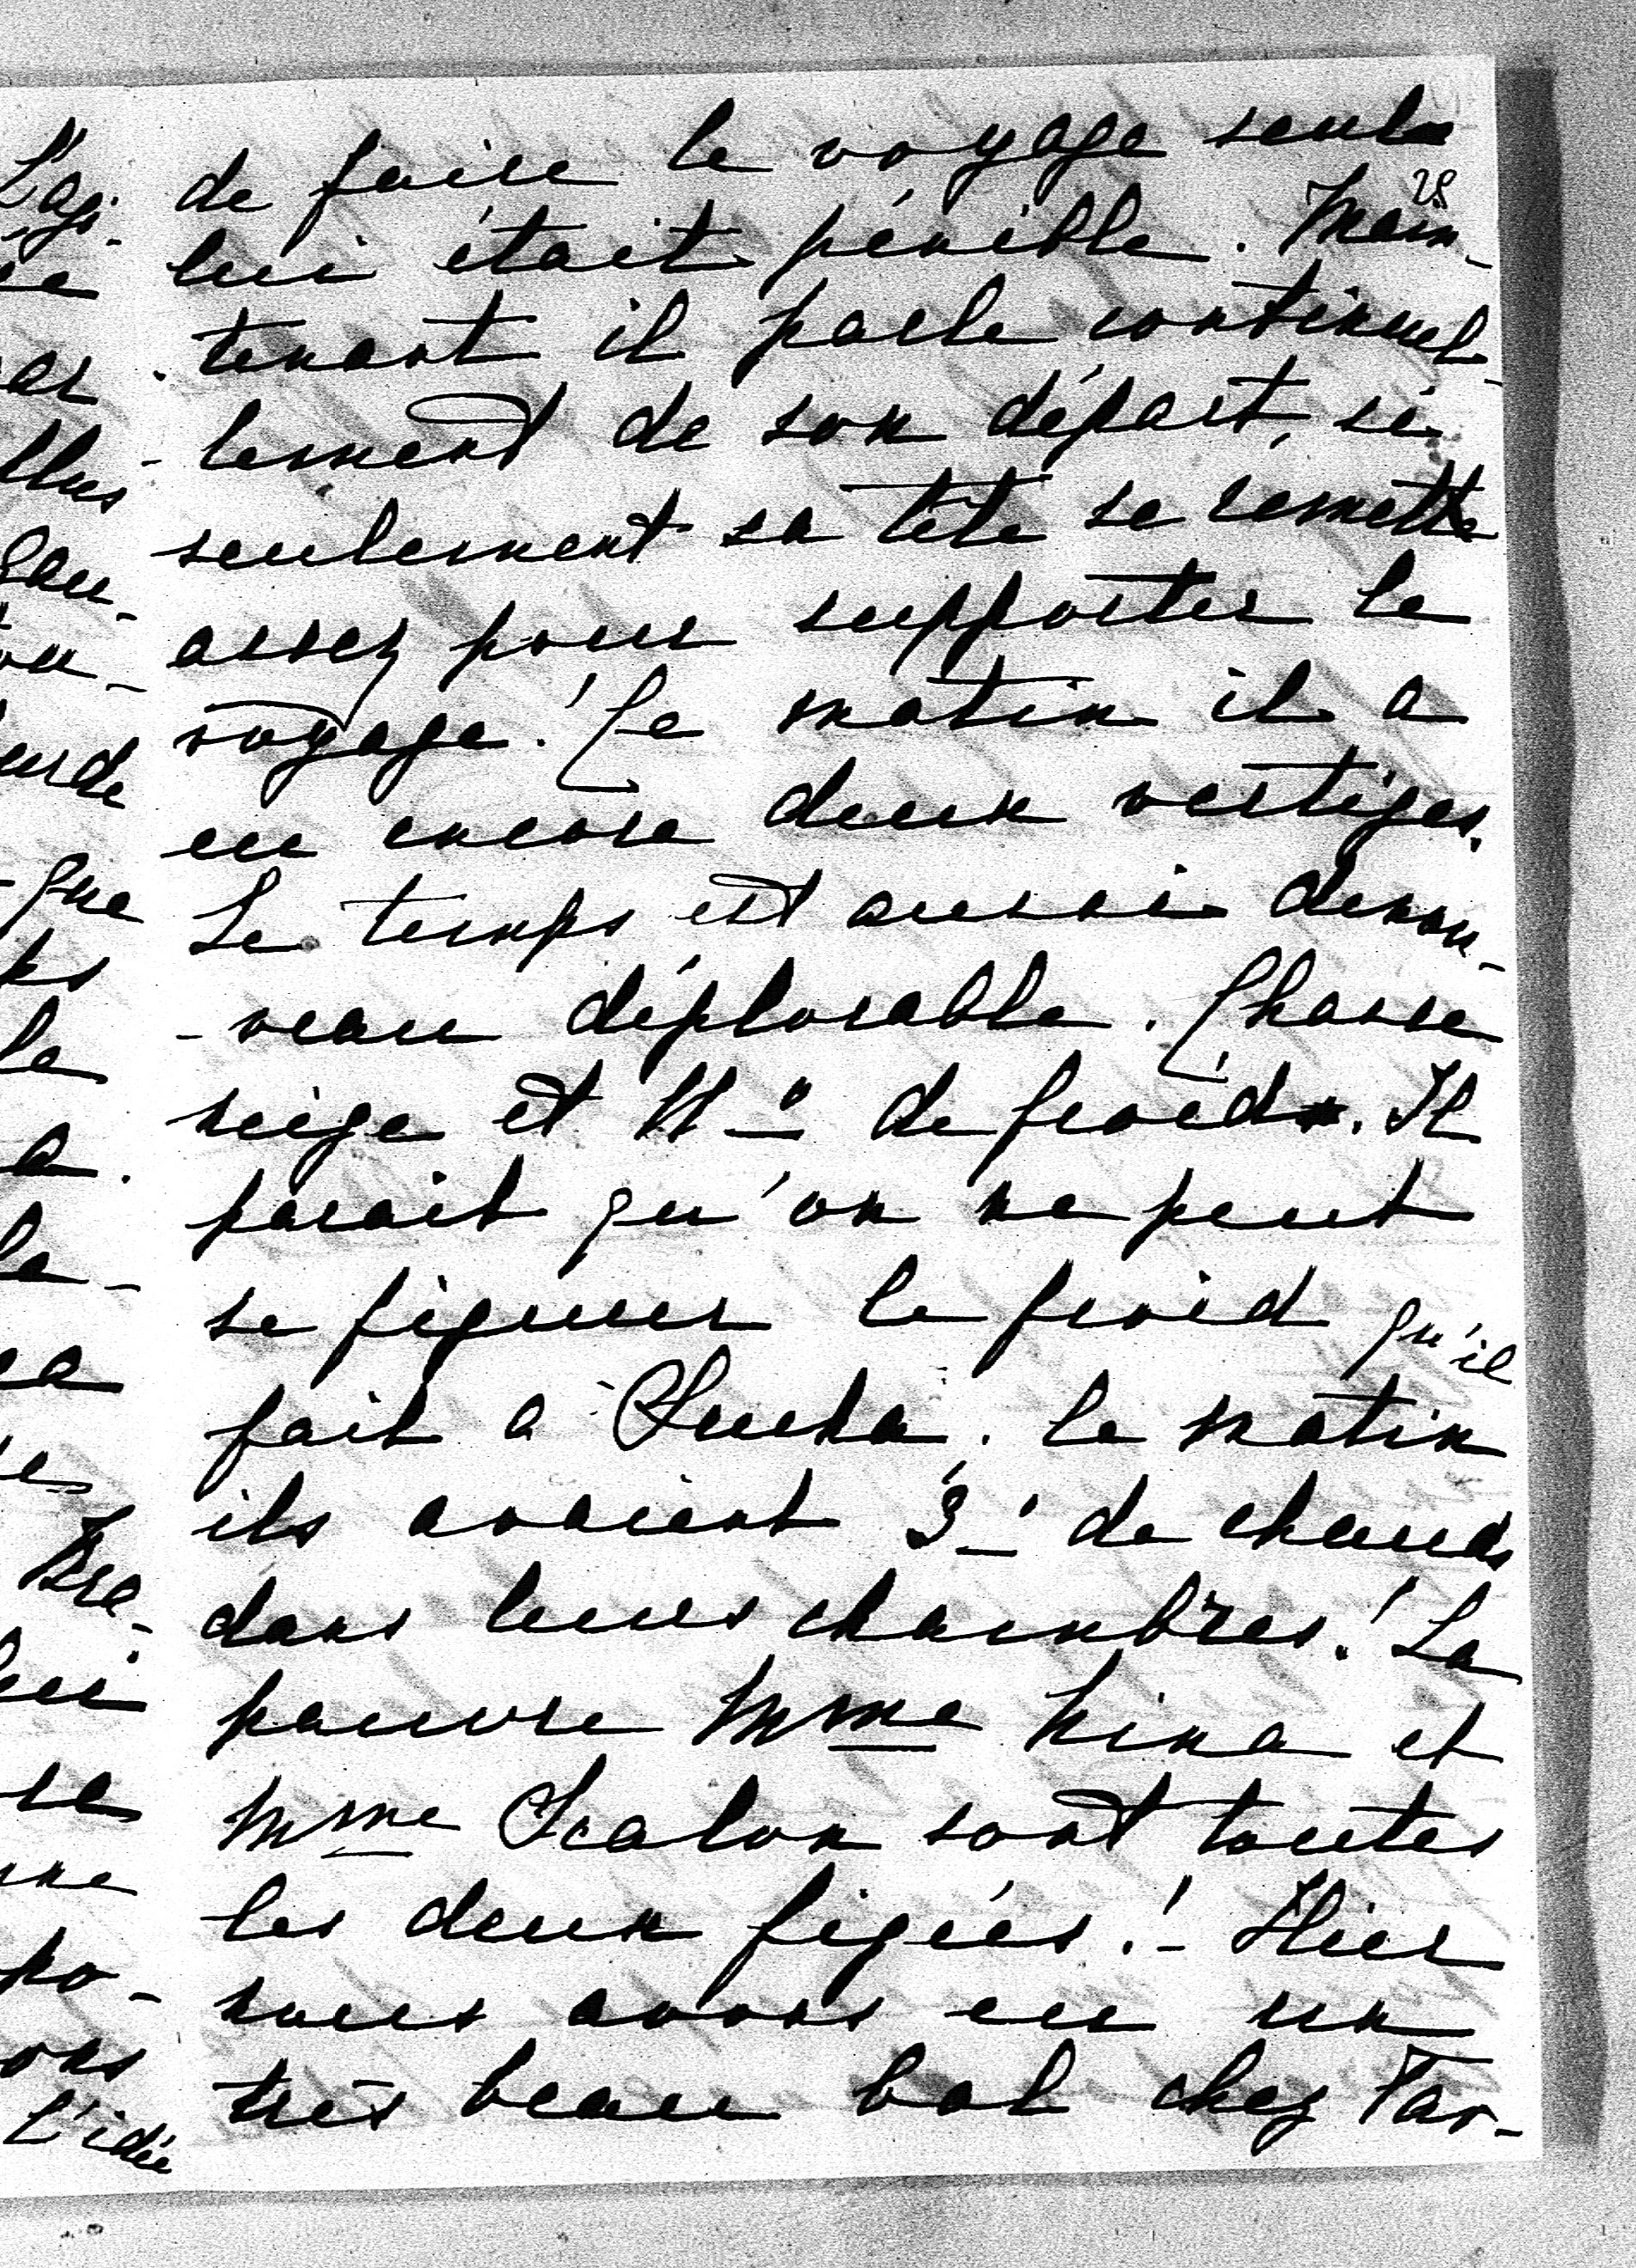 de faire le voyage seul
28
lui était pénible. Main-
tenant il parle continuel-
-lement de son départ, si
seulement sa tête se remette
assez pour supporter le
voyage! Ce matin il a
eu encore deux vertiges.
Le temps est aussi denou-
-veau déplorable. Chasse
neige et 11° de froid. Il
parait qu'on ne peut
se figurer le froid qu'il
fait a. le matin
ils avaient 3° de chaud
dans leurs chambres! La
pauvre Mme Nina et
Mme Scalon sont toutes
les deux figées! - Hier
nous avons eu un
très beau bal chez Tar-
L'agi-
lus
que
le
a.
la-
lui
se
po-
L'idée